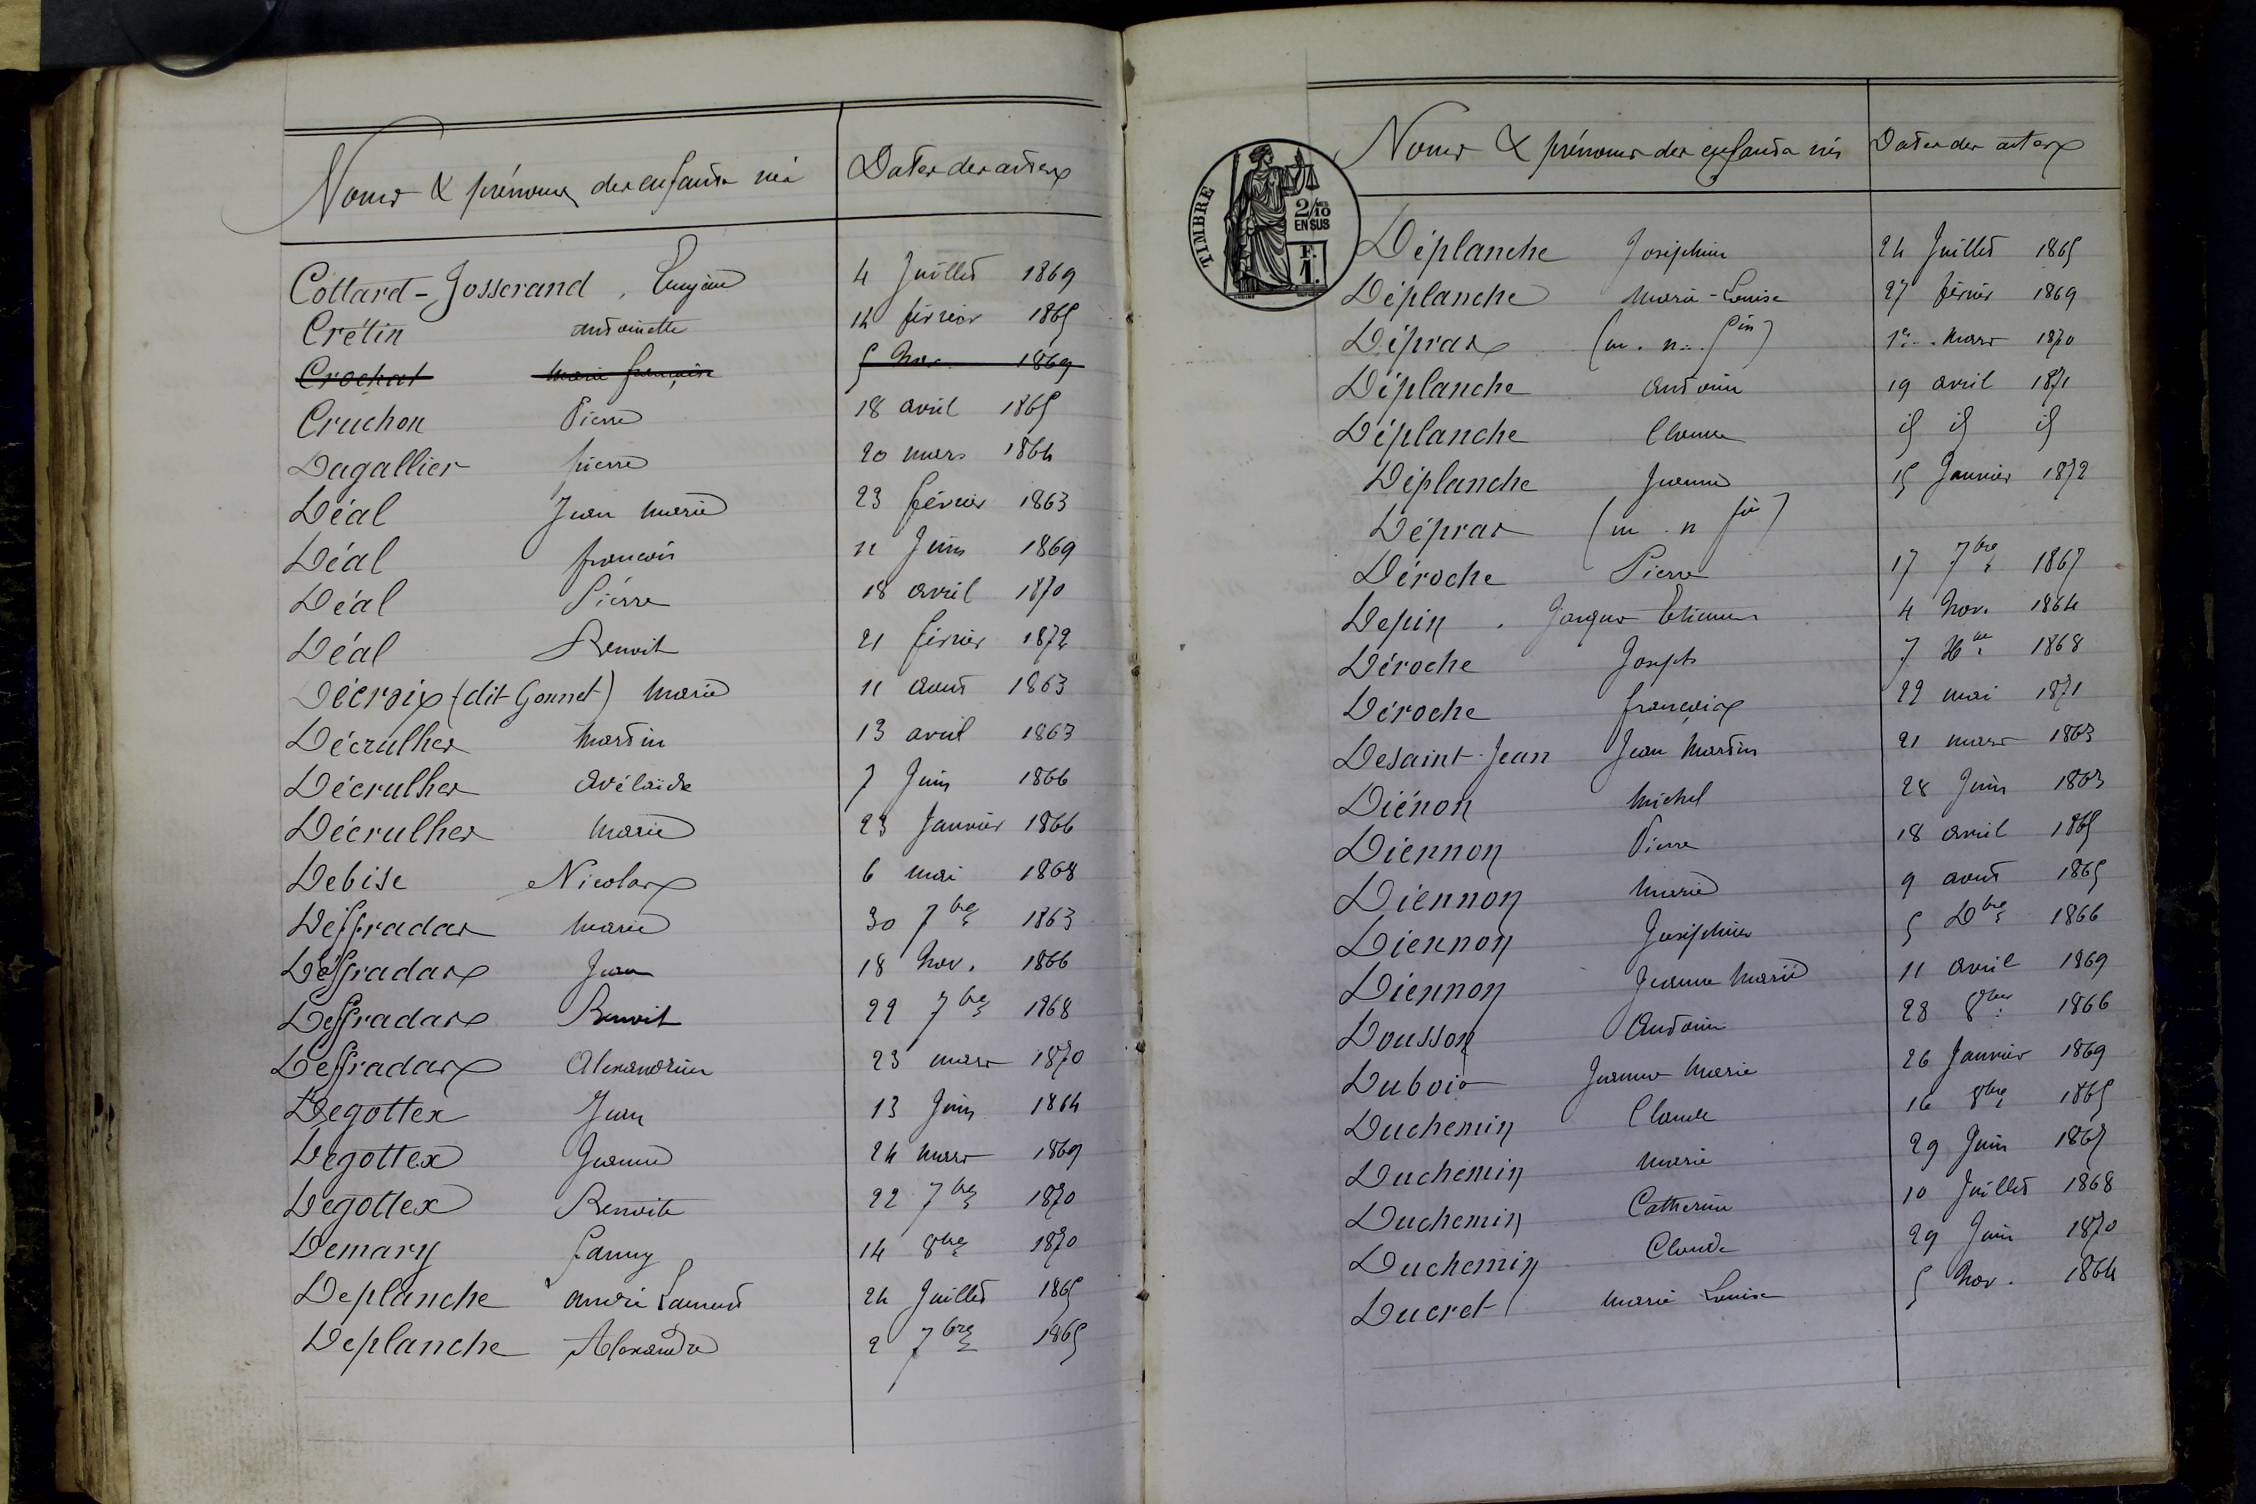 Noms & prénoms des enfants nés Dates des actes
Collard-Josserand. Eugénie 4 Juillet 1869
Crétin antoinette 14 février 1865
Crochat Marie françoise 5 Nov. 1869
Cruchon Pierre 18 avril 1865
Dagallier pierre 20 mars 1864
Déal Jean Marie 23 février 1863
Déal françois 11 Juin 1869
Déal Pierre 18 avril 1870
Déal Benoit 21 février 1872
Décroix (dit Gonnet) Marie 11 aout 1863
Décrulher Martin 13 avril 1863
Décrulher Adélaïde 7 Juin 1866
Décrulher Marie 23 Janvier 1866
Debise Nicolas 6 mai 1868
Deffradas Marie 30 7bre 1863
Deffradas Jean 18 Nov. 1866
Deffradas Benoit 22 7bre 1868
Deffradas Alexandrine 23 mars 1870
Degottex Jean 13 Juin 1864
Degottex Jeanne 24 Mars 1869
Degottex Benoite 22 7bre 1870
Demary fanny 14 8bre 1870
Deplanche André Laurent 24 Juillet 1865
Deplanche Alexandre 2 7bre 1865
TIMBRE
2/10
EN SUS
F.
1.
Noms & prénoms des enfants nés Dates des actes
Déplanche Joséphine 24 Juillet 1865
Déplanche Marie-Louise 27 février 1869
Dépras (m. n. fin) 1er Mars 1870
Déplanche Antoine 19 avril 1871
Déplanche id id id
Déplanche Jeanne 15 Janvier 1872
Dépras (m. n
Déroche Pierre 17 7bre 1867
Depin. Jacques Etienne 4 Nov. 1864
Déroche Joseph 7 1868
Déroche françois 22 mai 1871
Desaint-Jean Jean Martin 21 mars 1863
Diénon Michel 28 Juin 1863
Diennon Pierre 18 avril 1865
Diennon Marie 9 aout 1865
Diennon Joséphine 5 Dbre 1866
Diennon Jeanne Marie 11 avril 1869
Dousson Antoine 28 8bre 1866
Dubois Jeanne Marie 26 Janvier 1869
Duchemin Claude 16 8bre 1865
Duchemin Marie 29 Juin 1867
Duchemin Catherine 10 Juillet 1868
Duchemin Claude 29 Juin 1870
Ducret Marie Louise 5 Nov. 1864